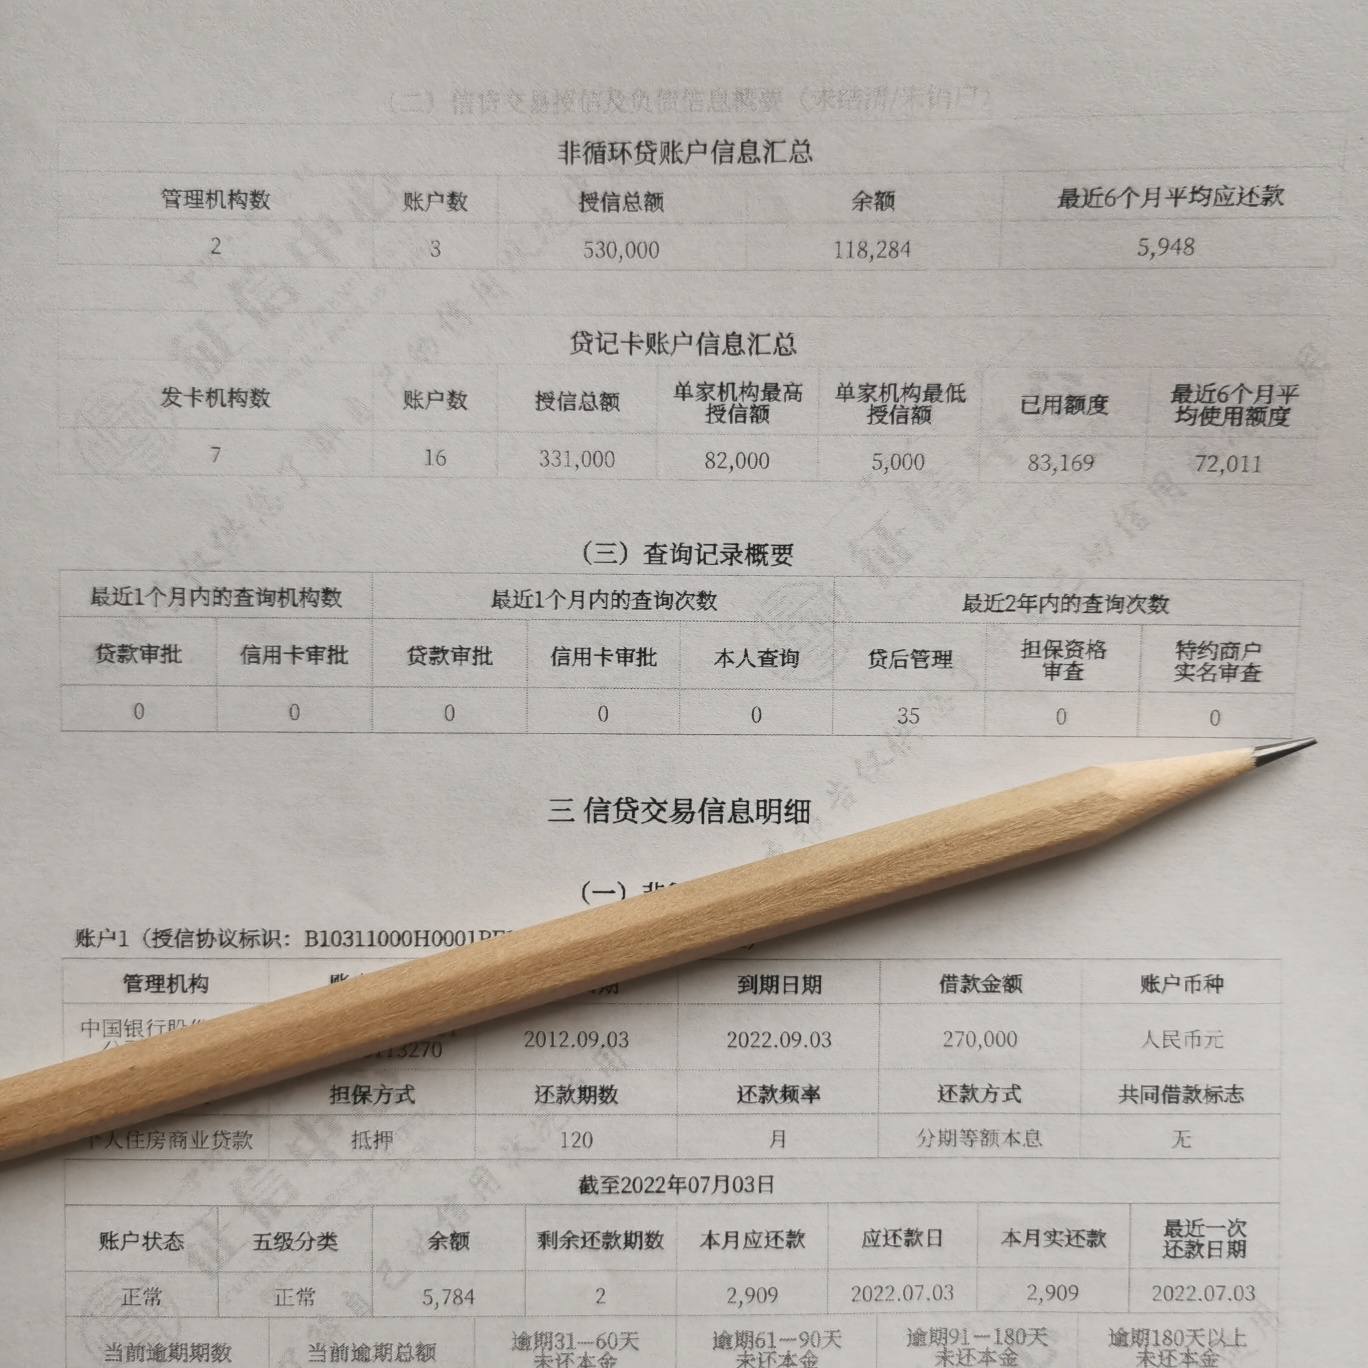 （二）信贷交易授信及负债信息概要（未结清/未销户）
非循环贷账户信息汇总
管理机构数 账户数 授信总额 余额 最近6个月平均应还款
2 3 530,000 118,284 5,948
贷记卡账户信息汇总
发卡机构数 账户数 授信总额 单家机构最高 单家机构最低 已用额度 最近6个月平
授信额 授信额 均使用额度
7 16 331,000 82,000 5,000 83,169 72,011
（三）查询记录概要
最近1个月内的查询机构数 最近1个月内的查询次数 最近2年内的查询次数
贷款审批 信用卡审批 贷款审批 信用卡审批 本人查询 贷后管理 担保资格 特约商户
审查 实名审查
0 0 0 0 0 35 0 0
三 信贷交易信息明细
（一）
账户1（授信协议标识：B10311000H0001
管理机构 到期日期 借款金额 账户币种
中国银行股 2012.09.03 2022.09.03 270,000 人民币元
13270
担保方式 还款期数 还款频率 还款方式 共同借款标志
个人住房商业贷款 抵押 120 月 分期等额本息 无
截至2022年07月03日
账户状态 五级分类 余额 剩余还款期数 本月应还款 应还款日 本月实还款 最近一次
还款日期
正常 正常 5,784 2 2,909 2022.07.03 2,909 2022.07.03
当前逾期期数 当前逾期总额 逾期31—60天 逾期61—90天 逾期91—180天 逾期180天以上
未还本金 未还本金 未还本金 未还本金